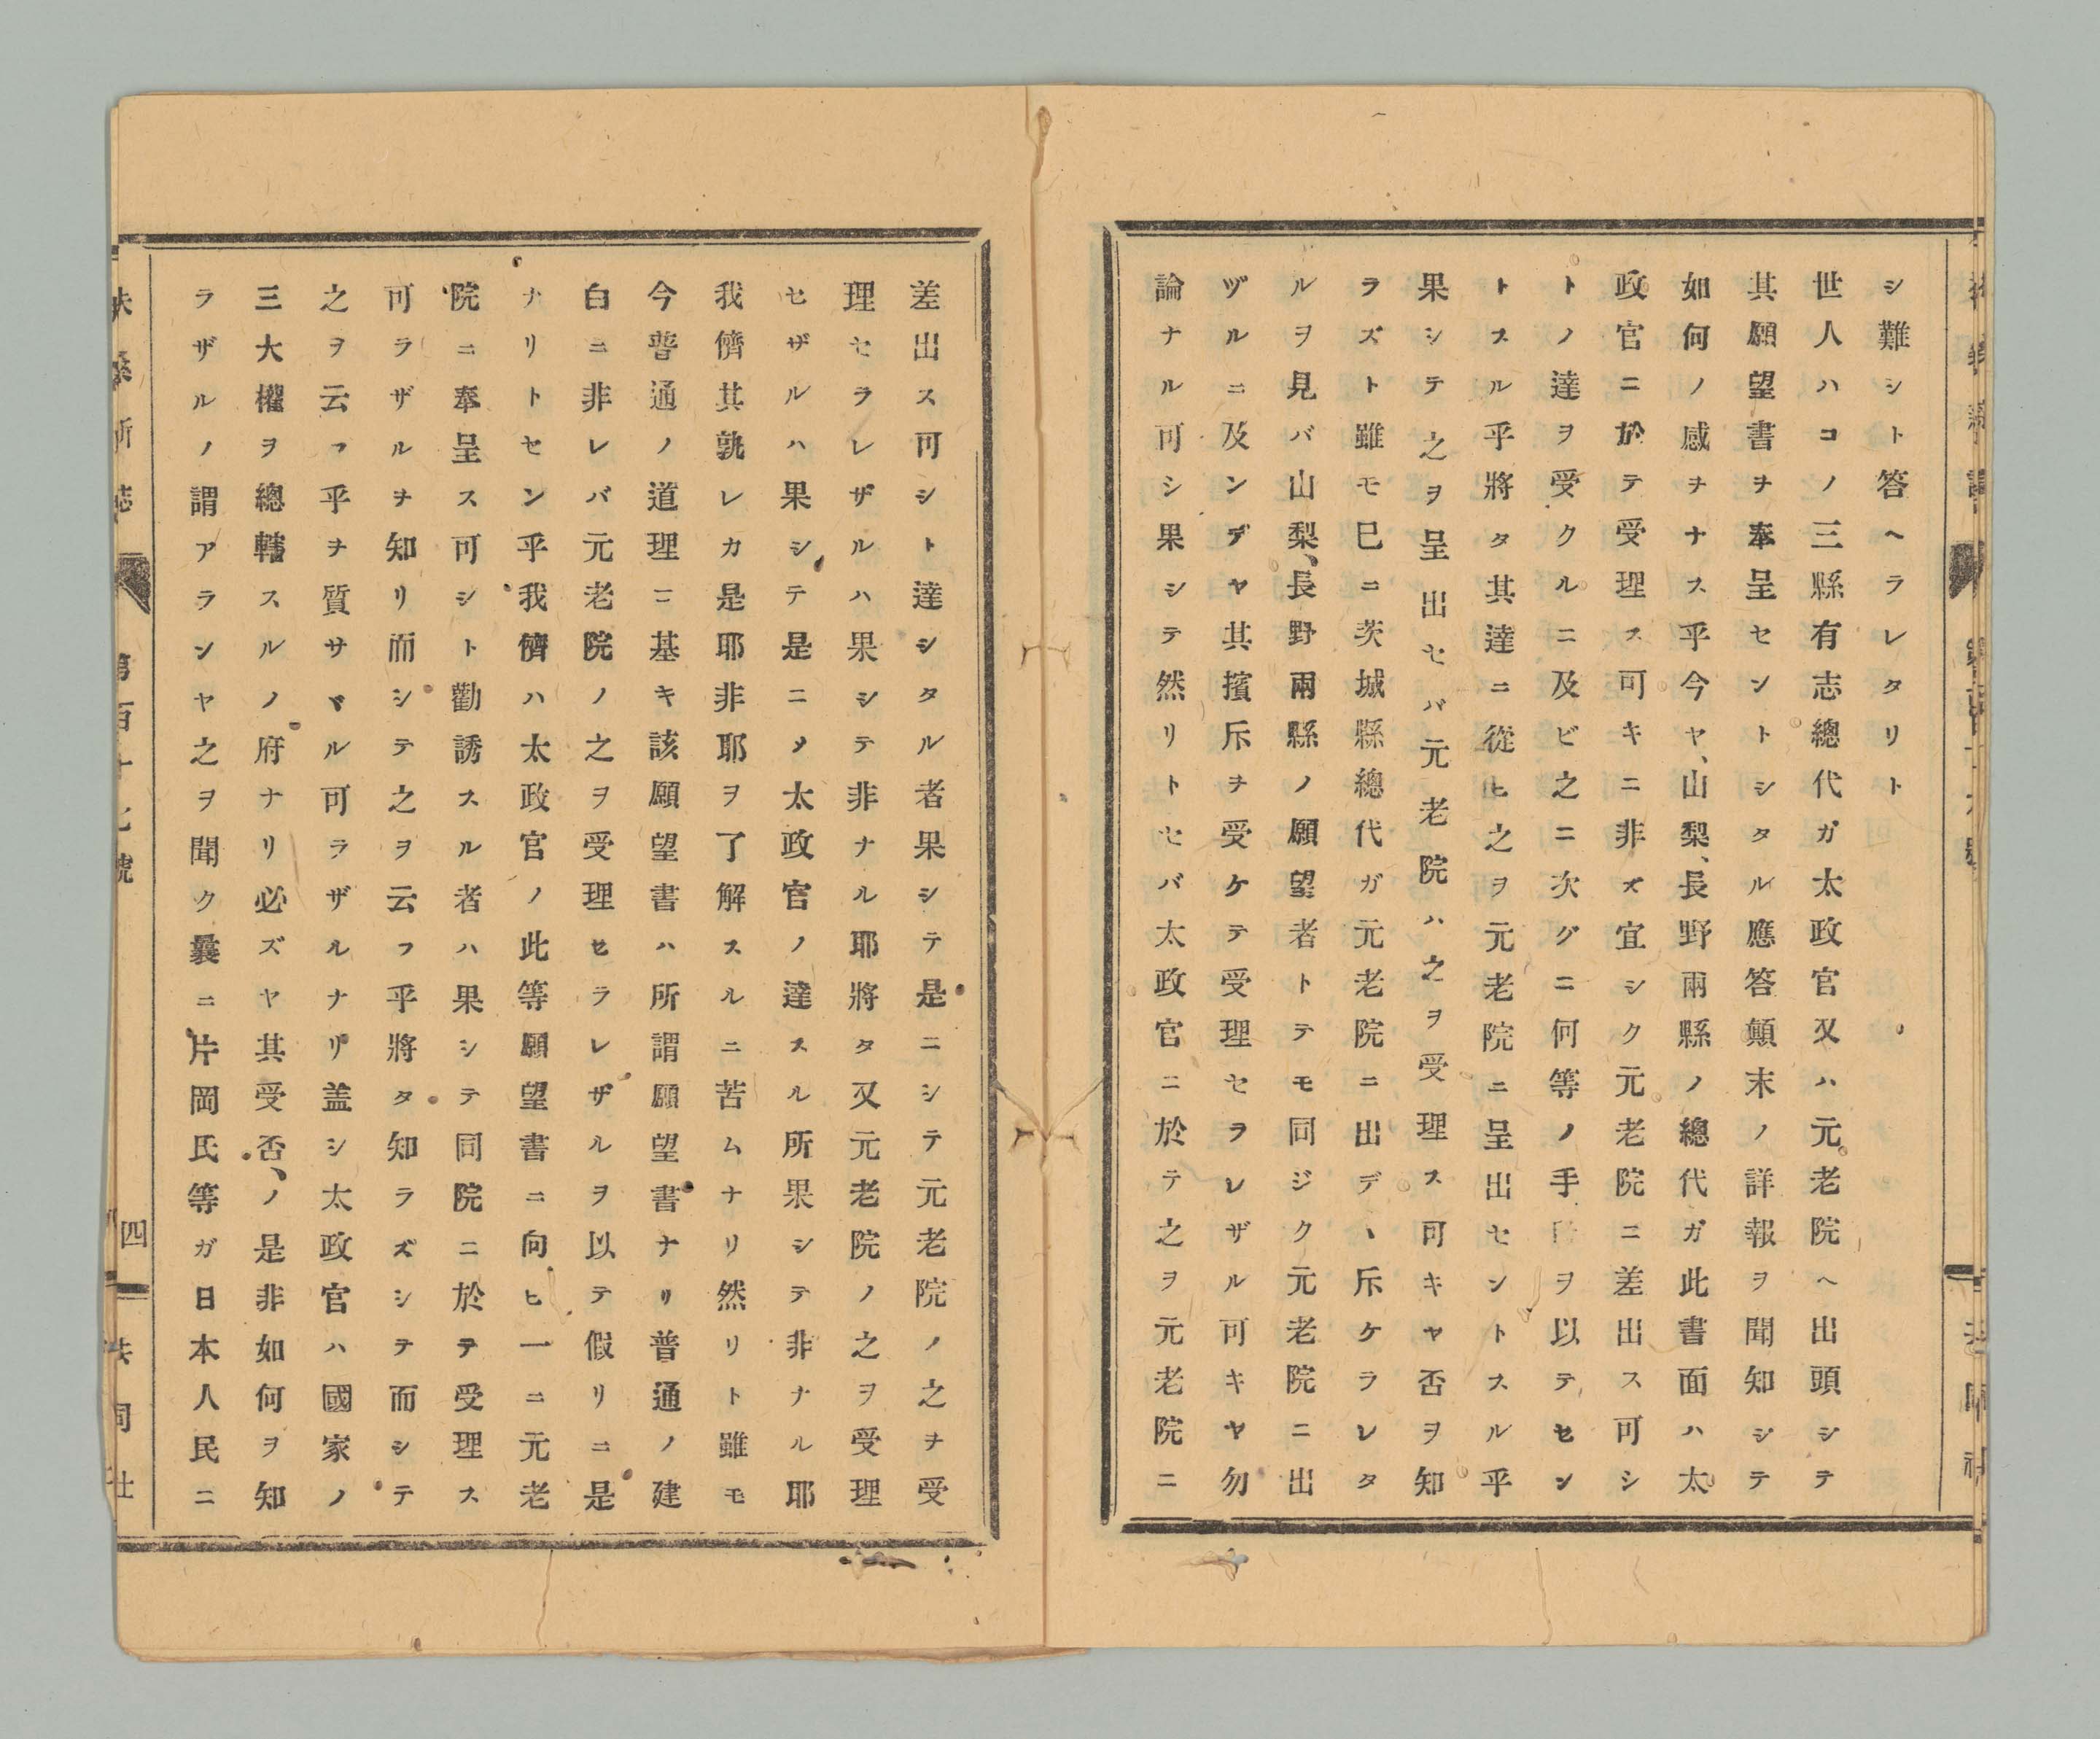 シ難シト答ヘラレタリト
世人ハコノ三縣有志總代ガ太政官又ハ元老院ヘ出頭シテ
其願望書ヲ奉呈セントシタル應答顛末ノ詳報ヲ聞知シテ
如何ノ感ヲナス乎今ヤ、山梨、長野兩縣ノ總代ガ此書面ハ太
政官ニ於テ受理ス可キニ非ズ宜シク元老院ニ差出ス可シ
トノ達ヲ受クルニ及ビ之ニ次グニ何等ノ手 ヲ以テセン
トスル乎將タ其達ニ從ヒ之ヲ元老院ニ呈出セントスル乎
果シテ之ヲ呈出セバ元老院ハ之ヲ受理ス可キヤ否ヲ知
ラズト雖モ巳ニ茨城縣總代ガ元老院ニ出デヽ斥ケラレタ
ルヲ見バ山梨、長野兩縣ノ願望者トテモ同ジク元老院ニ出
ヅルニ及ンデヤ其擯斥ヲ受ケテ受理セラレザル可キヤ勿
論ナル可シ果シテ然リトセバ太政官ニ於テ之ヲ元老院ニ
差出ス可シト達シタル者果シテ是ニシテ元老院ノ之ヲ受
理セラレザルハ果シテ非ナル耶將タ又元老院ノ之ヲ受理
セザルハ果シテ是ニメ太政官ノ達スル所果シテ非ナル耶
我儕其孰レカ是耶非耶ヲ了解スルニ苦ムナリ然リト雖モ
今普通ノ道理ニ基キ該願望書ハ所謂願望書ナリ普通ノ建
白ニ非レバ元老院ノ之ヲ受理セラレザルヲ以テ假リニ是
ナリトセン乎我儕ハ太政官ノ此等願望書ニ向ヒ一ニ元老
院ニ奉呈ス可シト勸誘スル者ハ果シテ同院ニ於テ受理ス
可ラザルヲ知リ而シテ之ヲ云フ乎將タ知ラズシテ而シテ
之ヲ云フ乎ヲ質サヾル可ラザルナリ盖シ太政官ハ國家ノ
三大權ヲ總轄スルノ府ナリ必ズヤ其受否、ノ是非如何ヲ知
ラザルノ謂アランヤ之ヲ聞ク曩ニ片岡氏等ガ日本人民ニ
四